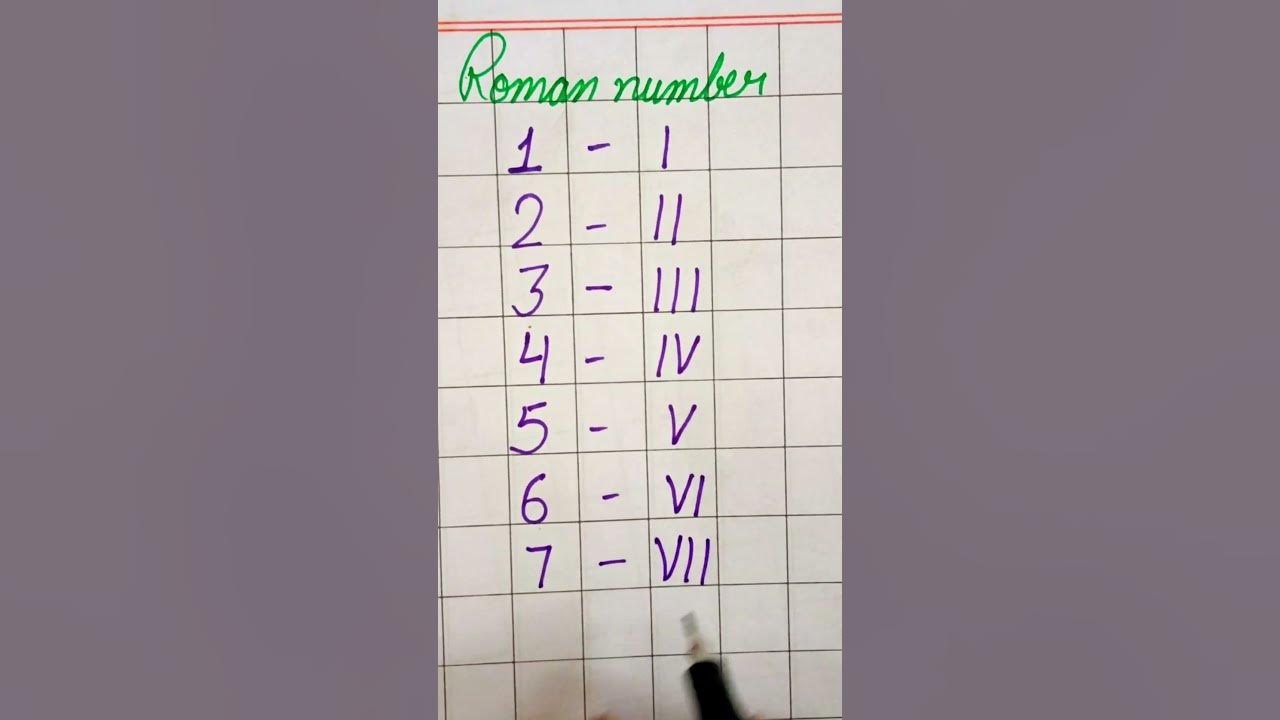 Roman number
1 - I
2 - II
3 - III
4 - IV
5 - V
6 - VI
7 - VII